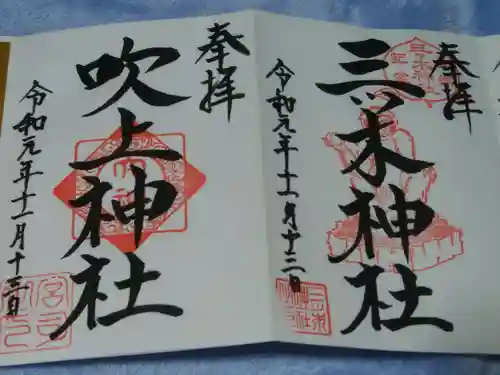 奉拝
三ツ木神社
令和元年十一月十二日
奉拝
吹上神社
令和元年十一月十三日